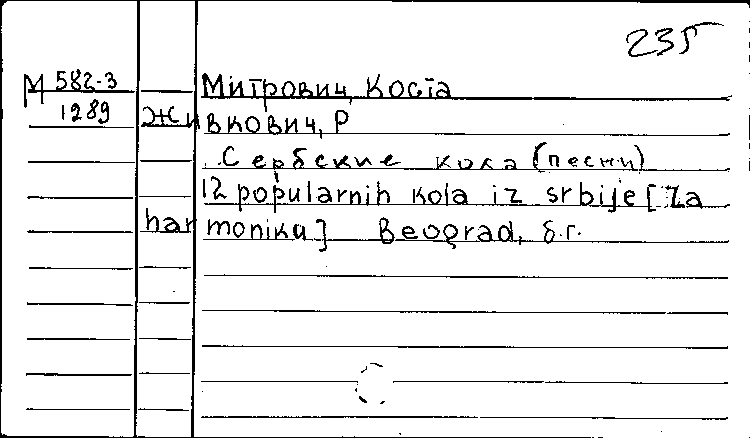 235
М 582-3 Митрович, Коста
1289 Живкович, Р
Сербские кола (песни)
12 popularnih kola iz srbije [Za
harmoniku] Beograd, б.г.